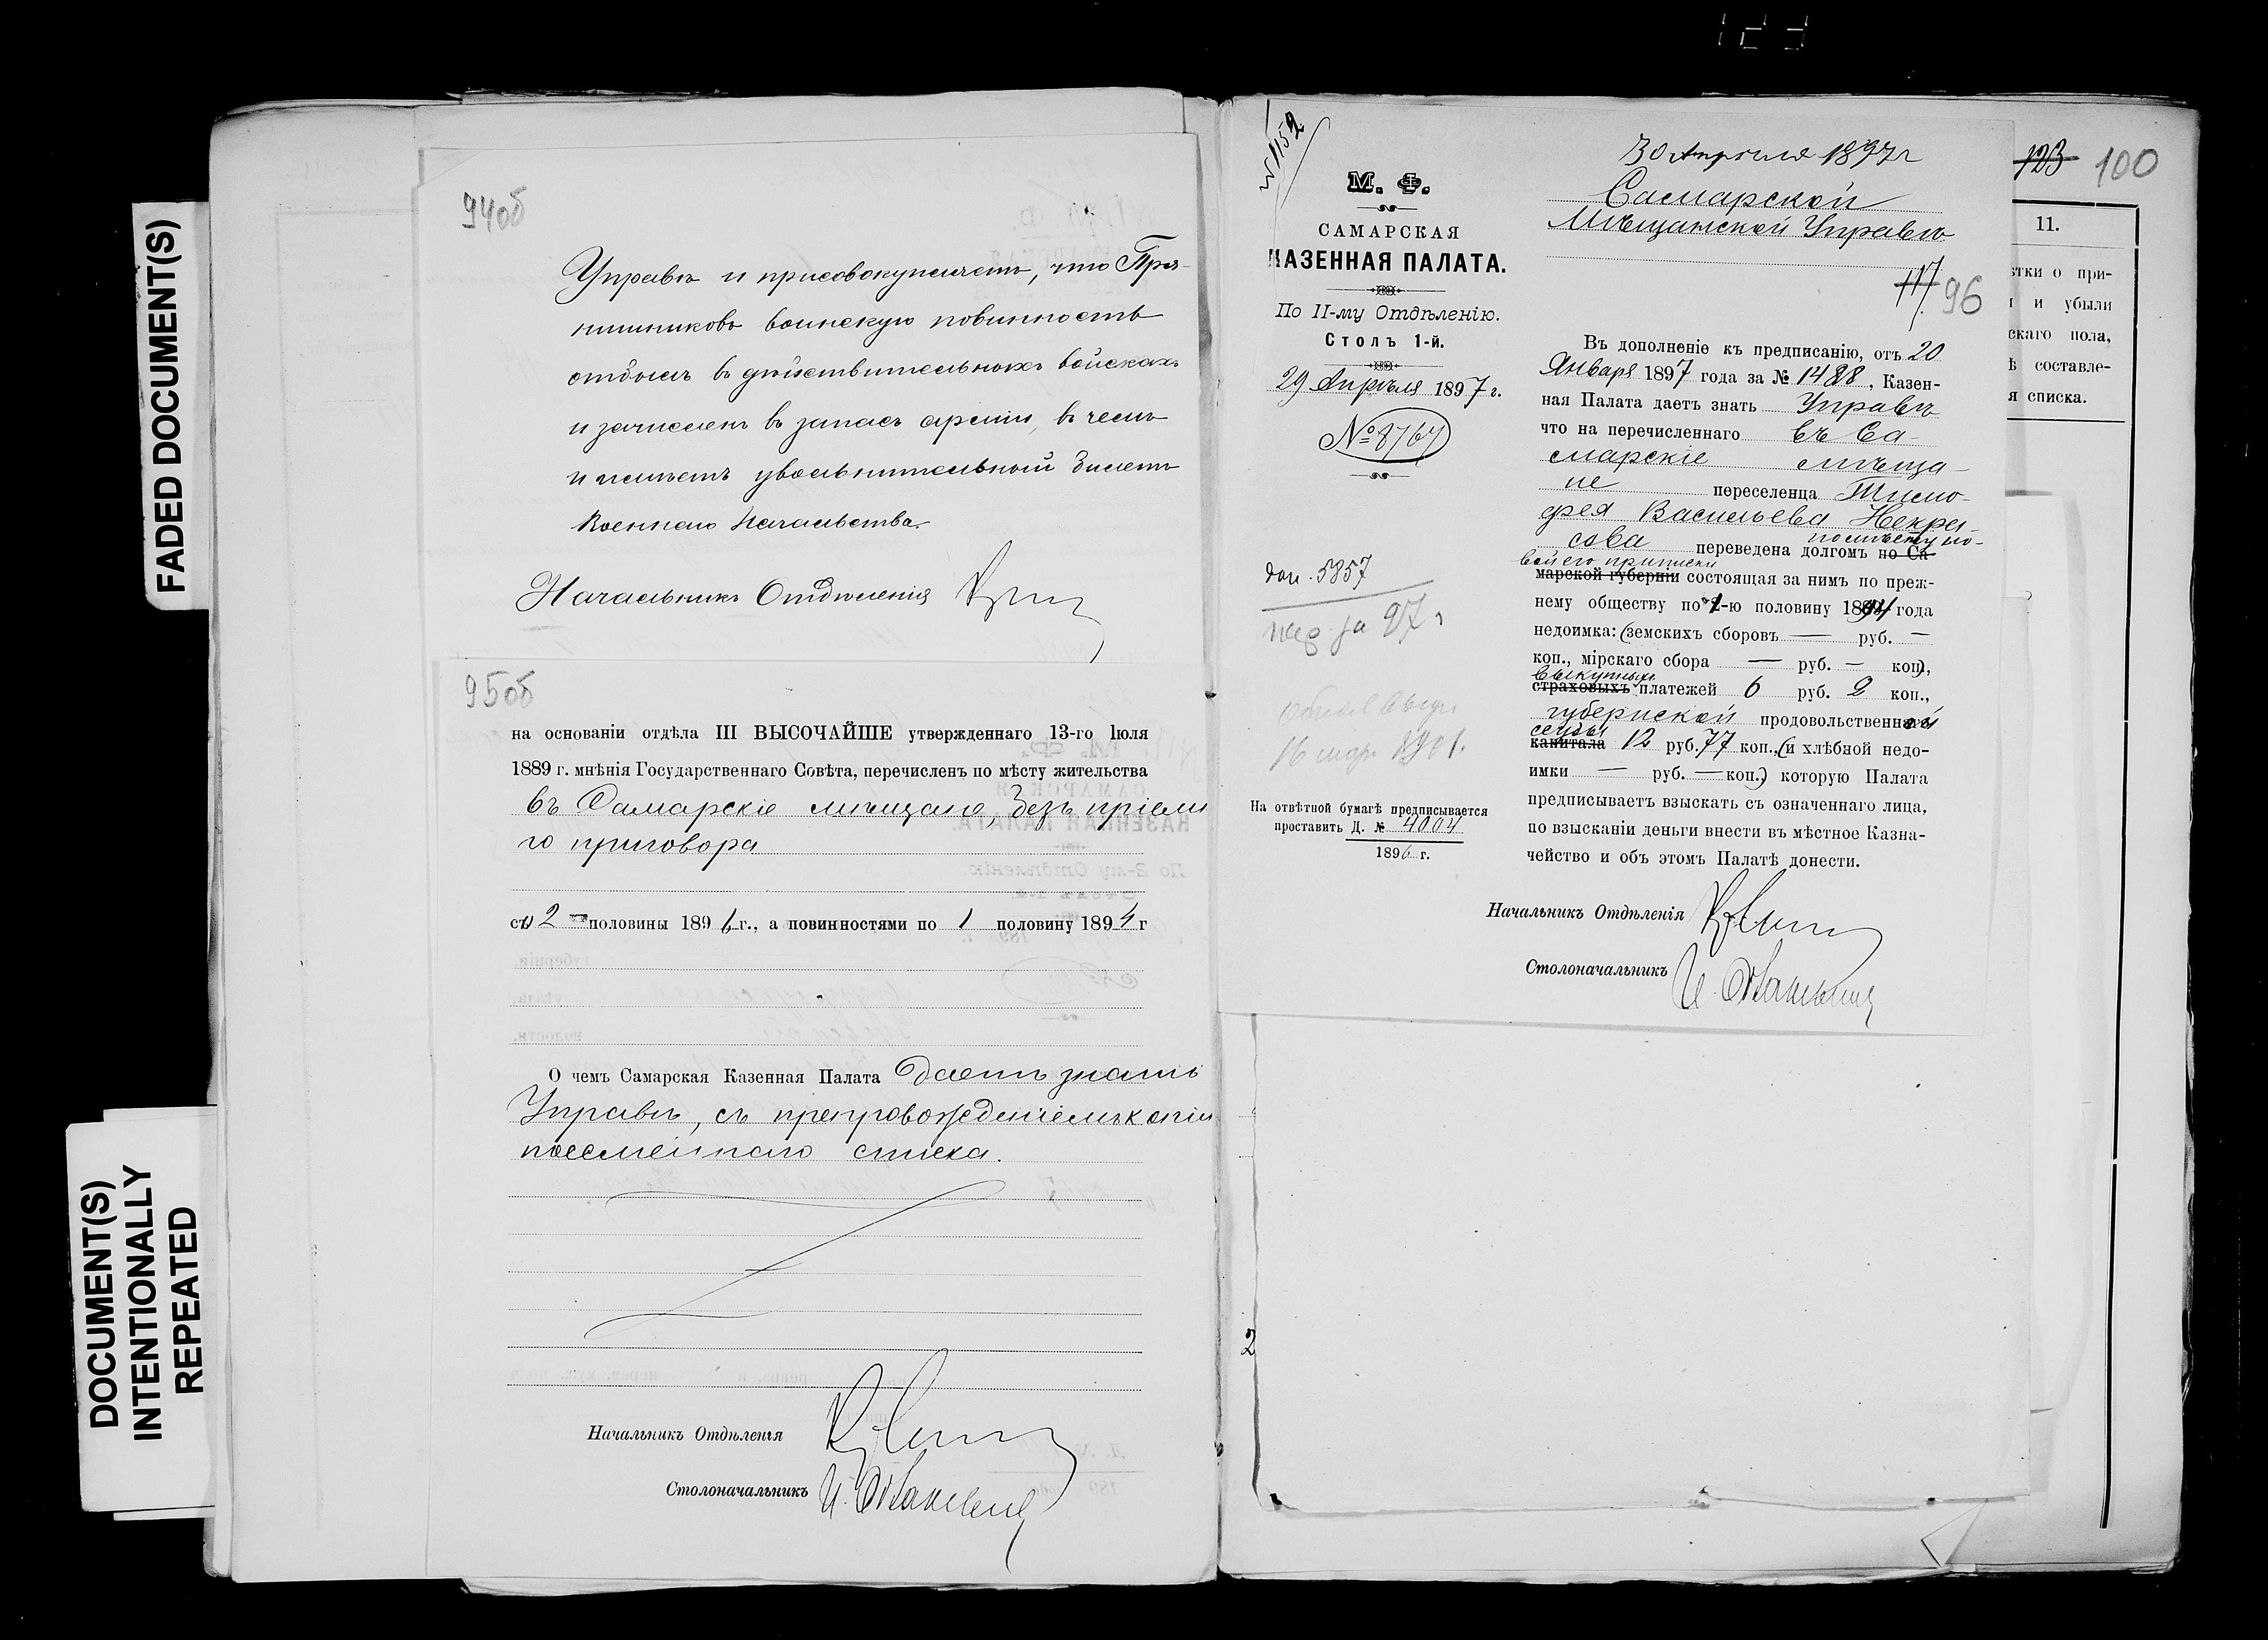 FADED DOCUMENT(S)
DOCUMENT(S)
INTENTIONALLY
REPEATED
94об
Управѣ и присовокупляетъ, что Пря-
нишниковъ воинскую повинность
отбылъ въ дѣйствительныхъ войскахъ
и зачисленъ въ запасъ арміи, въ чемъ
и имѣетъ увольнительный билетъ
Военнаго Начальства.
Начальникъ Отдѣленія
95об
на основаніи отдѣла III ВЫСОЧАЙШЕ утвержденнаго 13-го Іюля
1889 г. мнѣнія Государственнаго Совѣта, перечисленъ по мѣсту жительства
въ Самарскіе мѣщане, безъ пріемна
го приговора
со 2 половины 1896 г., а повинностями по 1 половину 1894 г
О чемъ Самарская Казенная Палата даетъ знать
Управѣ, съ препровожденіемъ копіи
посемейнаго списка.
Начальникъ Отдѣленія
Столоначальникъ
№ 1152
М. Ф.
САМАРСКАЯ
КАЗЕННАЯ ПАЛАТА.
По II-му Отдѣленію.
Столъ 1-й.
29 Апрѣля 1897 г.
№ 8764
5857
за 97 г
1901.
На отвѣтной бумагѣ предписывается
проставить Д. № 4004
1896 г.
30 Апрѣля 1897 г
Самарской
Мѣщанской Управѣ
117 96
Въ дополненіе къ предписанію, отъ 20
Января 1897 года за № 1488, Казен-
ная Палата даетъ знать Управѣ
что на перечисленнаго въ Са-
марскіе мѣща-
не переселенца Тимо-
фея Васильева Некра-
сова переведена долгомъ по Са-
по мѣсту но-
вой его приписки
марской губерніи состоящая за нимъ по преж-
нему обществу по 1-ю половину 1894 года
недоимка: (земскихъ сборовъ — руб. —
коп., мірскаго сбора — руб. — коп),
выкупныхъ
страховыхъ платежей 6 руб. 2 коп.,
губернской продовольственной
ссуды
капитала 12 руб. 77 коп., (и хлѣбной недо-
имки — руб. — коп.) которую Палата
предписываетъ взыскать съ означеннаго лица,
по взысканіи деньги внести въ мѣстное Казна-
чейство и объ этомъ Палатѣ донести.
Начальникъ Отдѣленія
Столоначальникъ
123 100
11.
тки о при-
и убыли
скаго пола,
ѣ составле-
я списка.
2